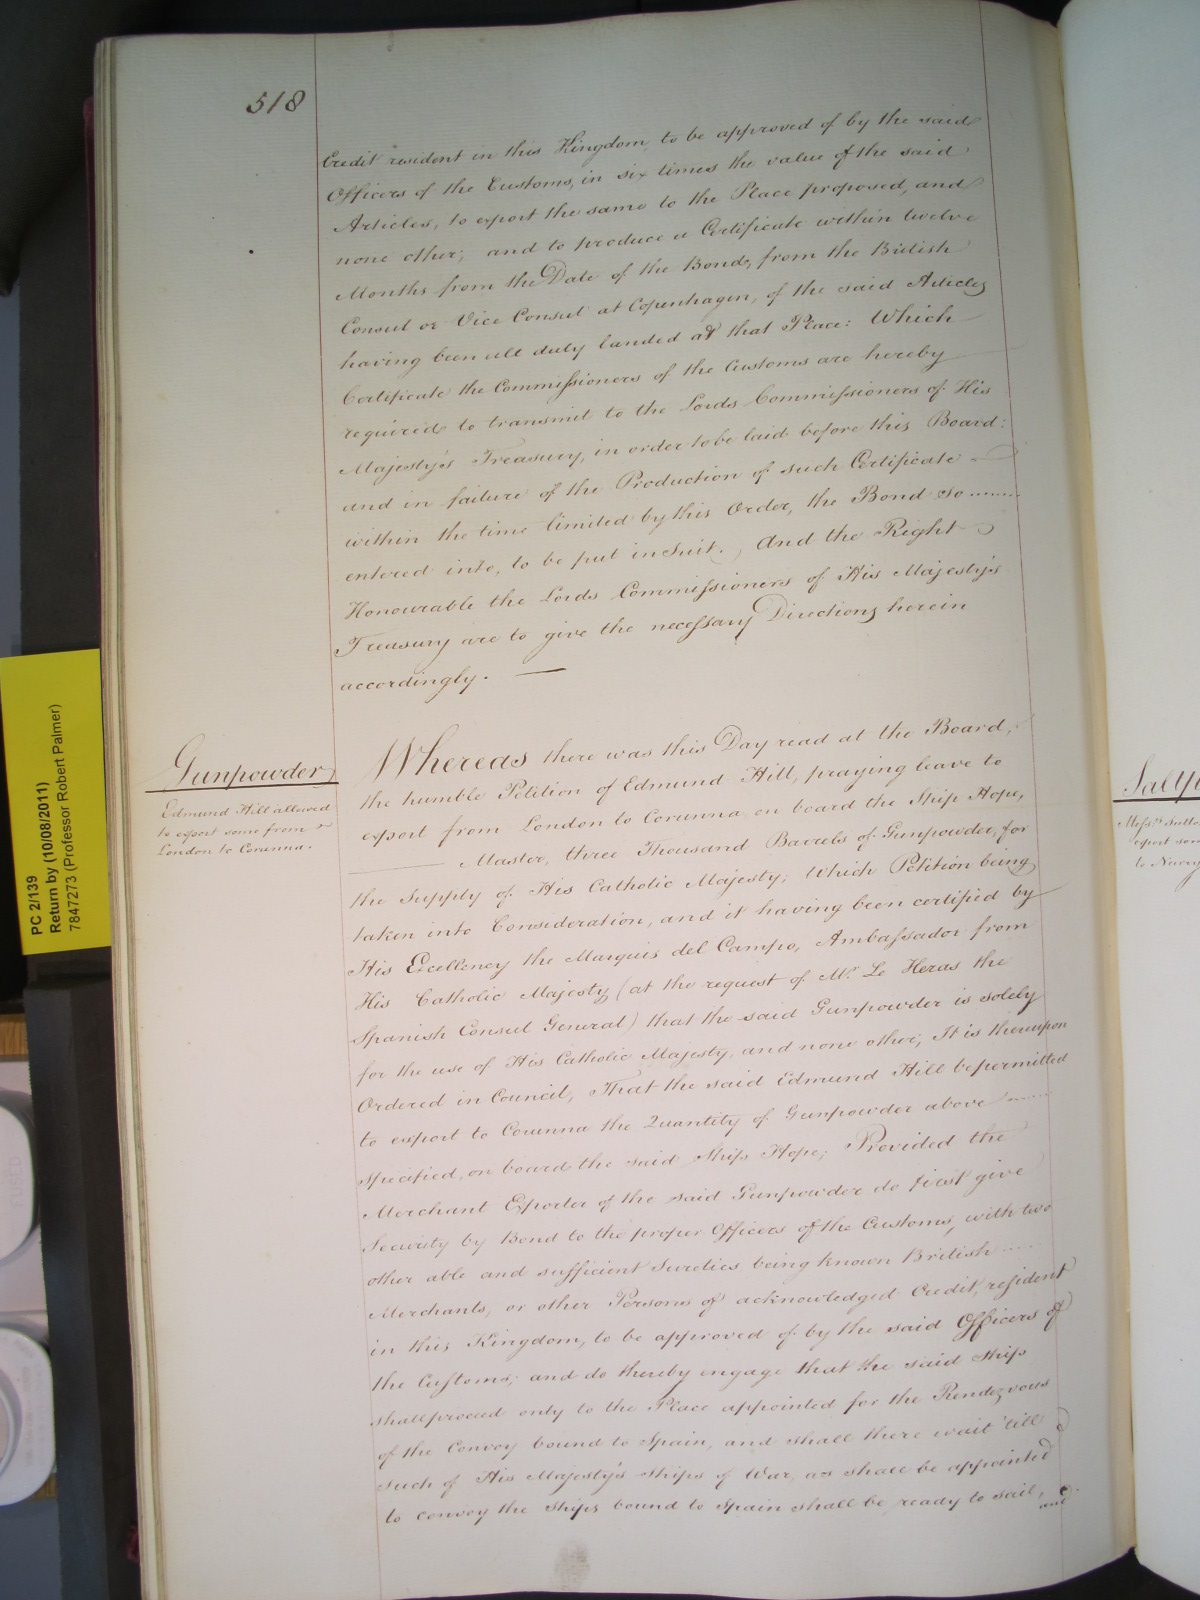 518
Credit resident in this Kingdom, to be approved of by the said
Officers of the Customs, in six times the value of the said
Articles, to export the same to the Place proposed, and
none other; and to produce a Certificate within twelve
Months from the Date of the Bond, from the British
Consul or Vice Consul at Copenhagen, of the said Articles
having been all duly landed at that Place: Which
Certificate the Commissioners of the Customs are hereby
required to transmit to the Lords Commissioners of His
Majesty's Treasury, in order to be laid before this Board:
and in failure of the Production of such Certificate
within the time limited by this Order, the Bond so ........
entered into, to be put in Suit. And the Right
Honourable the Lords Commissioners of His Majesty's
Treasury are to give the necessary Directions herein
accordingly. —
Gunpowder
Edmund Hill allowed
to export some from
London to Corunna.
Whereas there was this Day read at the Board,
the humble Petition of Edmund Hill, praying leave to
export from London to Corunna on board the Ship Hope,
——— Master, three Thousand Barrels of Gunpowder, for
the Supply of His Catholic Majesty; Which Petition being
taken into Consideration, and it having been certified by
His Excellency the Marquis del Campo, Ambassador from
His Catholic Majesty (at the request of Mr. Le Heras the
Spanish Consul General) that the said Gunpowder is solely
for the use of His Catholic Majesty, and none other; It is thereupon
Ordered in Council, That the said Edmund Hill be permitted
to export to Corunna the Quantity of Gunpowder above ........
specified, on board the said Ship Hope; Provided the
Merchant Exporter of the said Gunpowder do first give
Security by Bond to the proper Officers of the Customs, with two
other able and sufficient Sureties being known British ....
Merchants, or other Persons of acknowledged Credit, resident
in this Kingdom, to be approved of by the said Officers of
the Customs; and do thereby engage that the said Ship
shall proceed only to the Place appointed for the Rendezvous
of the Convoy bound to Spain, and shall there wait 'till
such of His Majesty's Ships of War, as shall be appointed
to convoy the Ships bound to Spain shall be ready to sail,
and
PC 2/139
Return by (10/08/2011)
7847273 (Professor Robert Palmer)